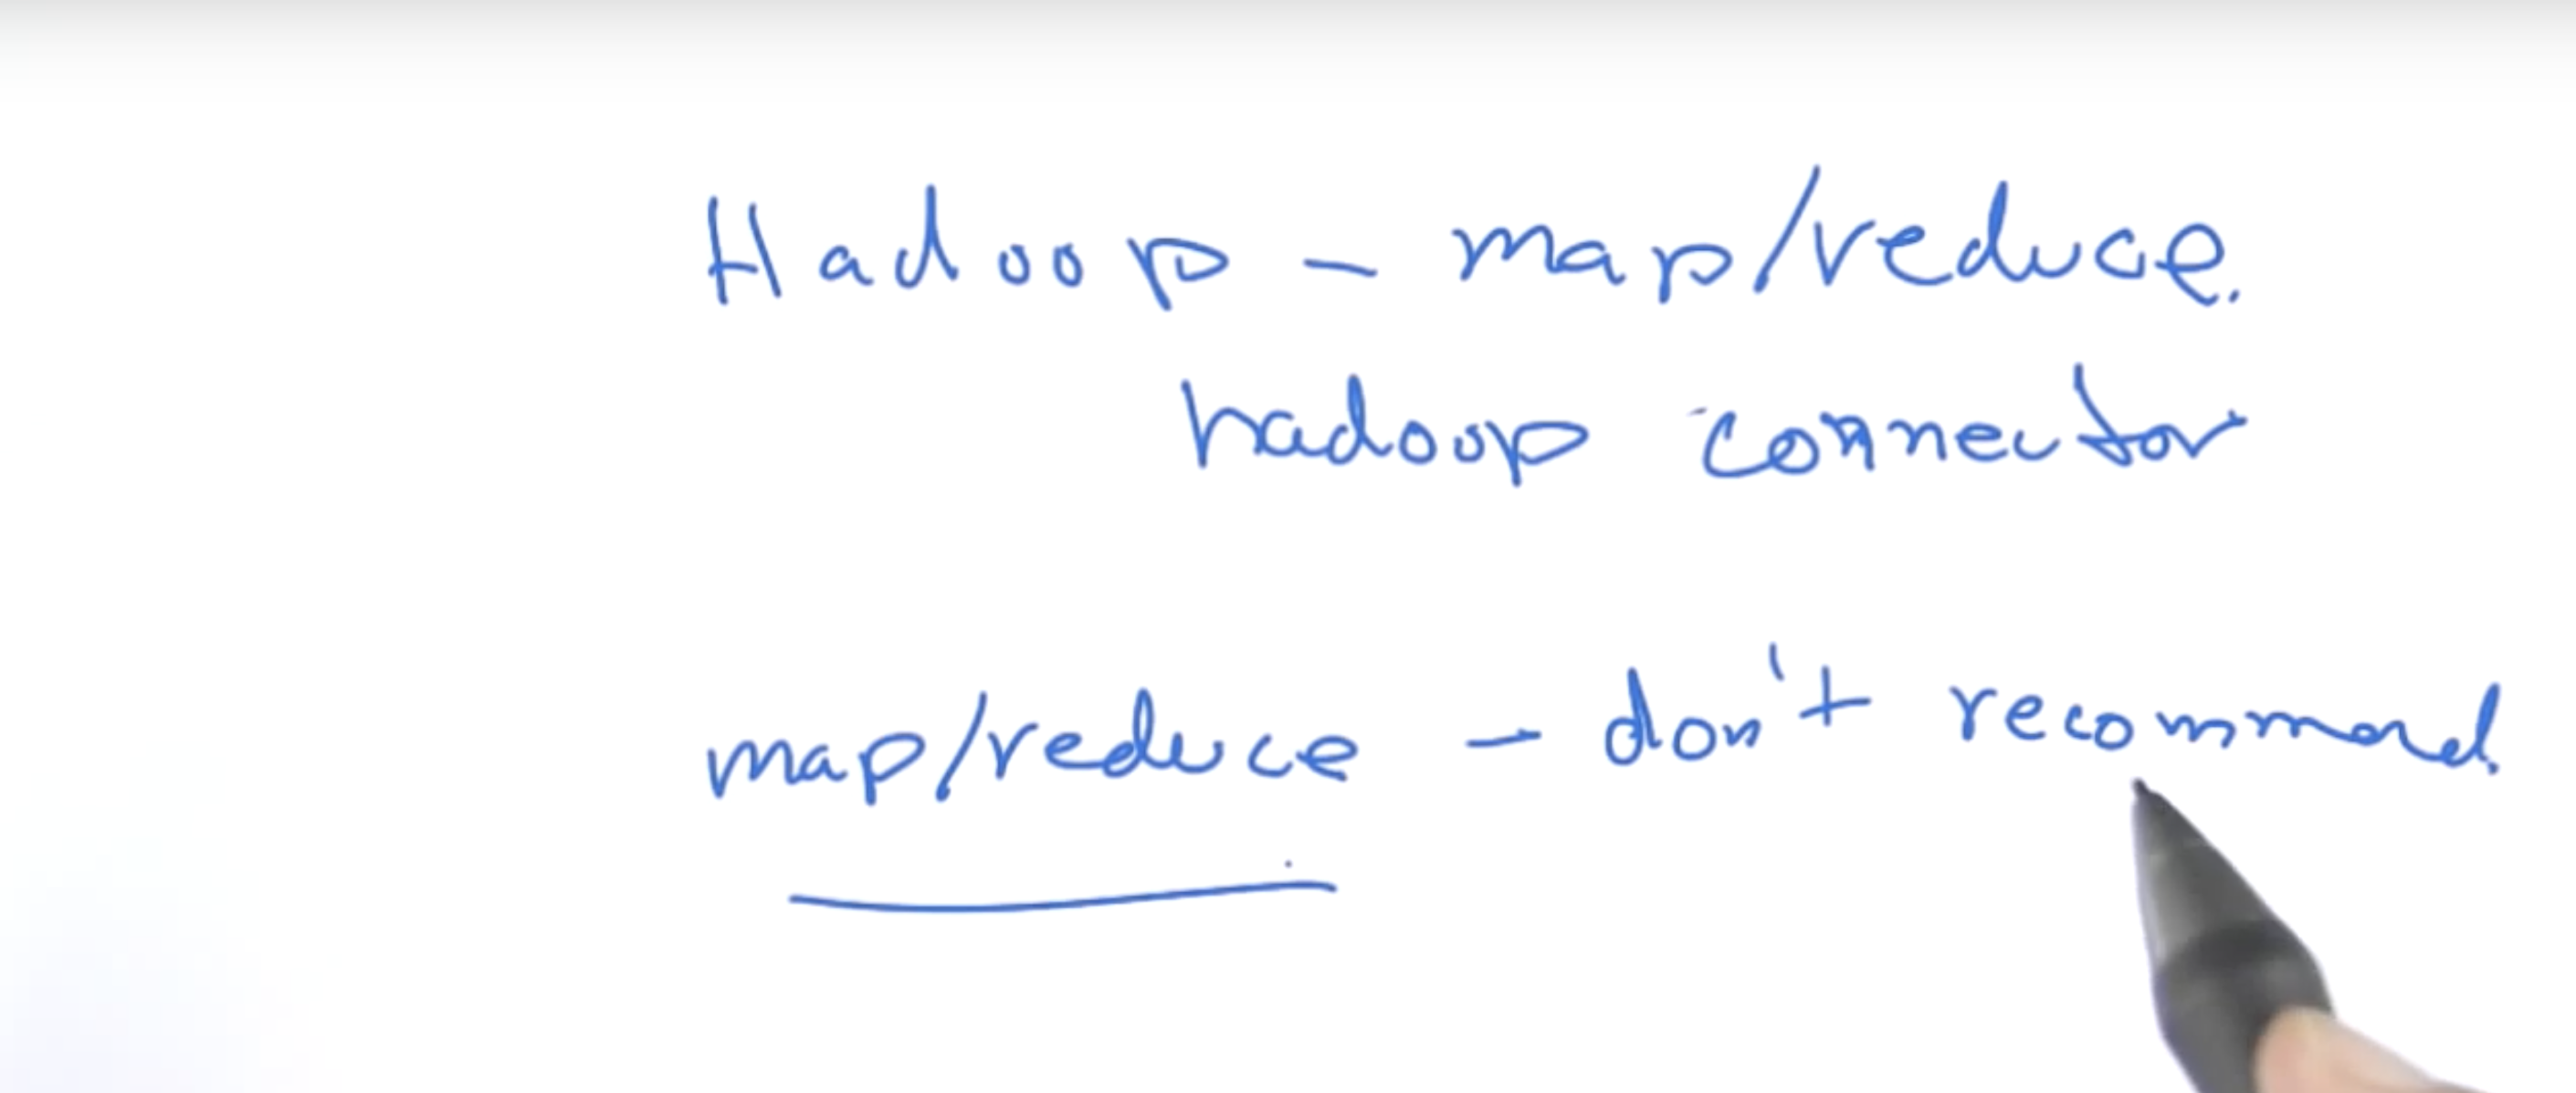 Hadoop - map/reduce.
hadoop connector
map/reduce - don't recommend.